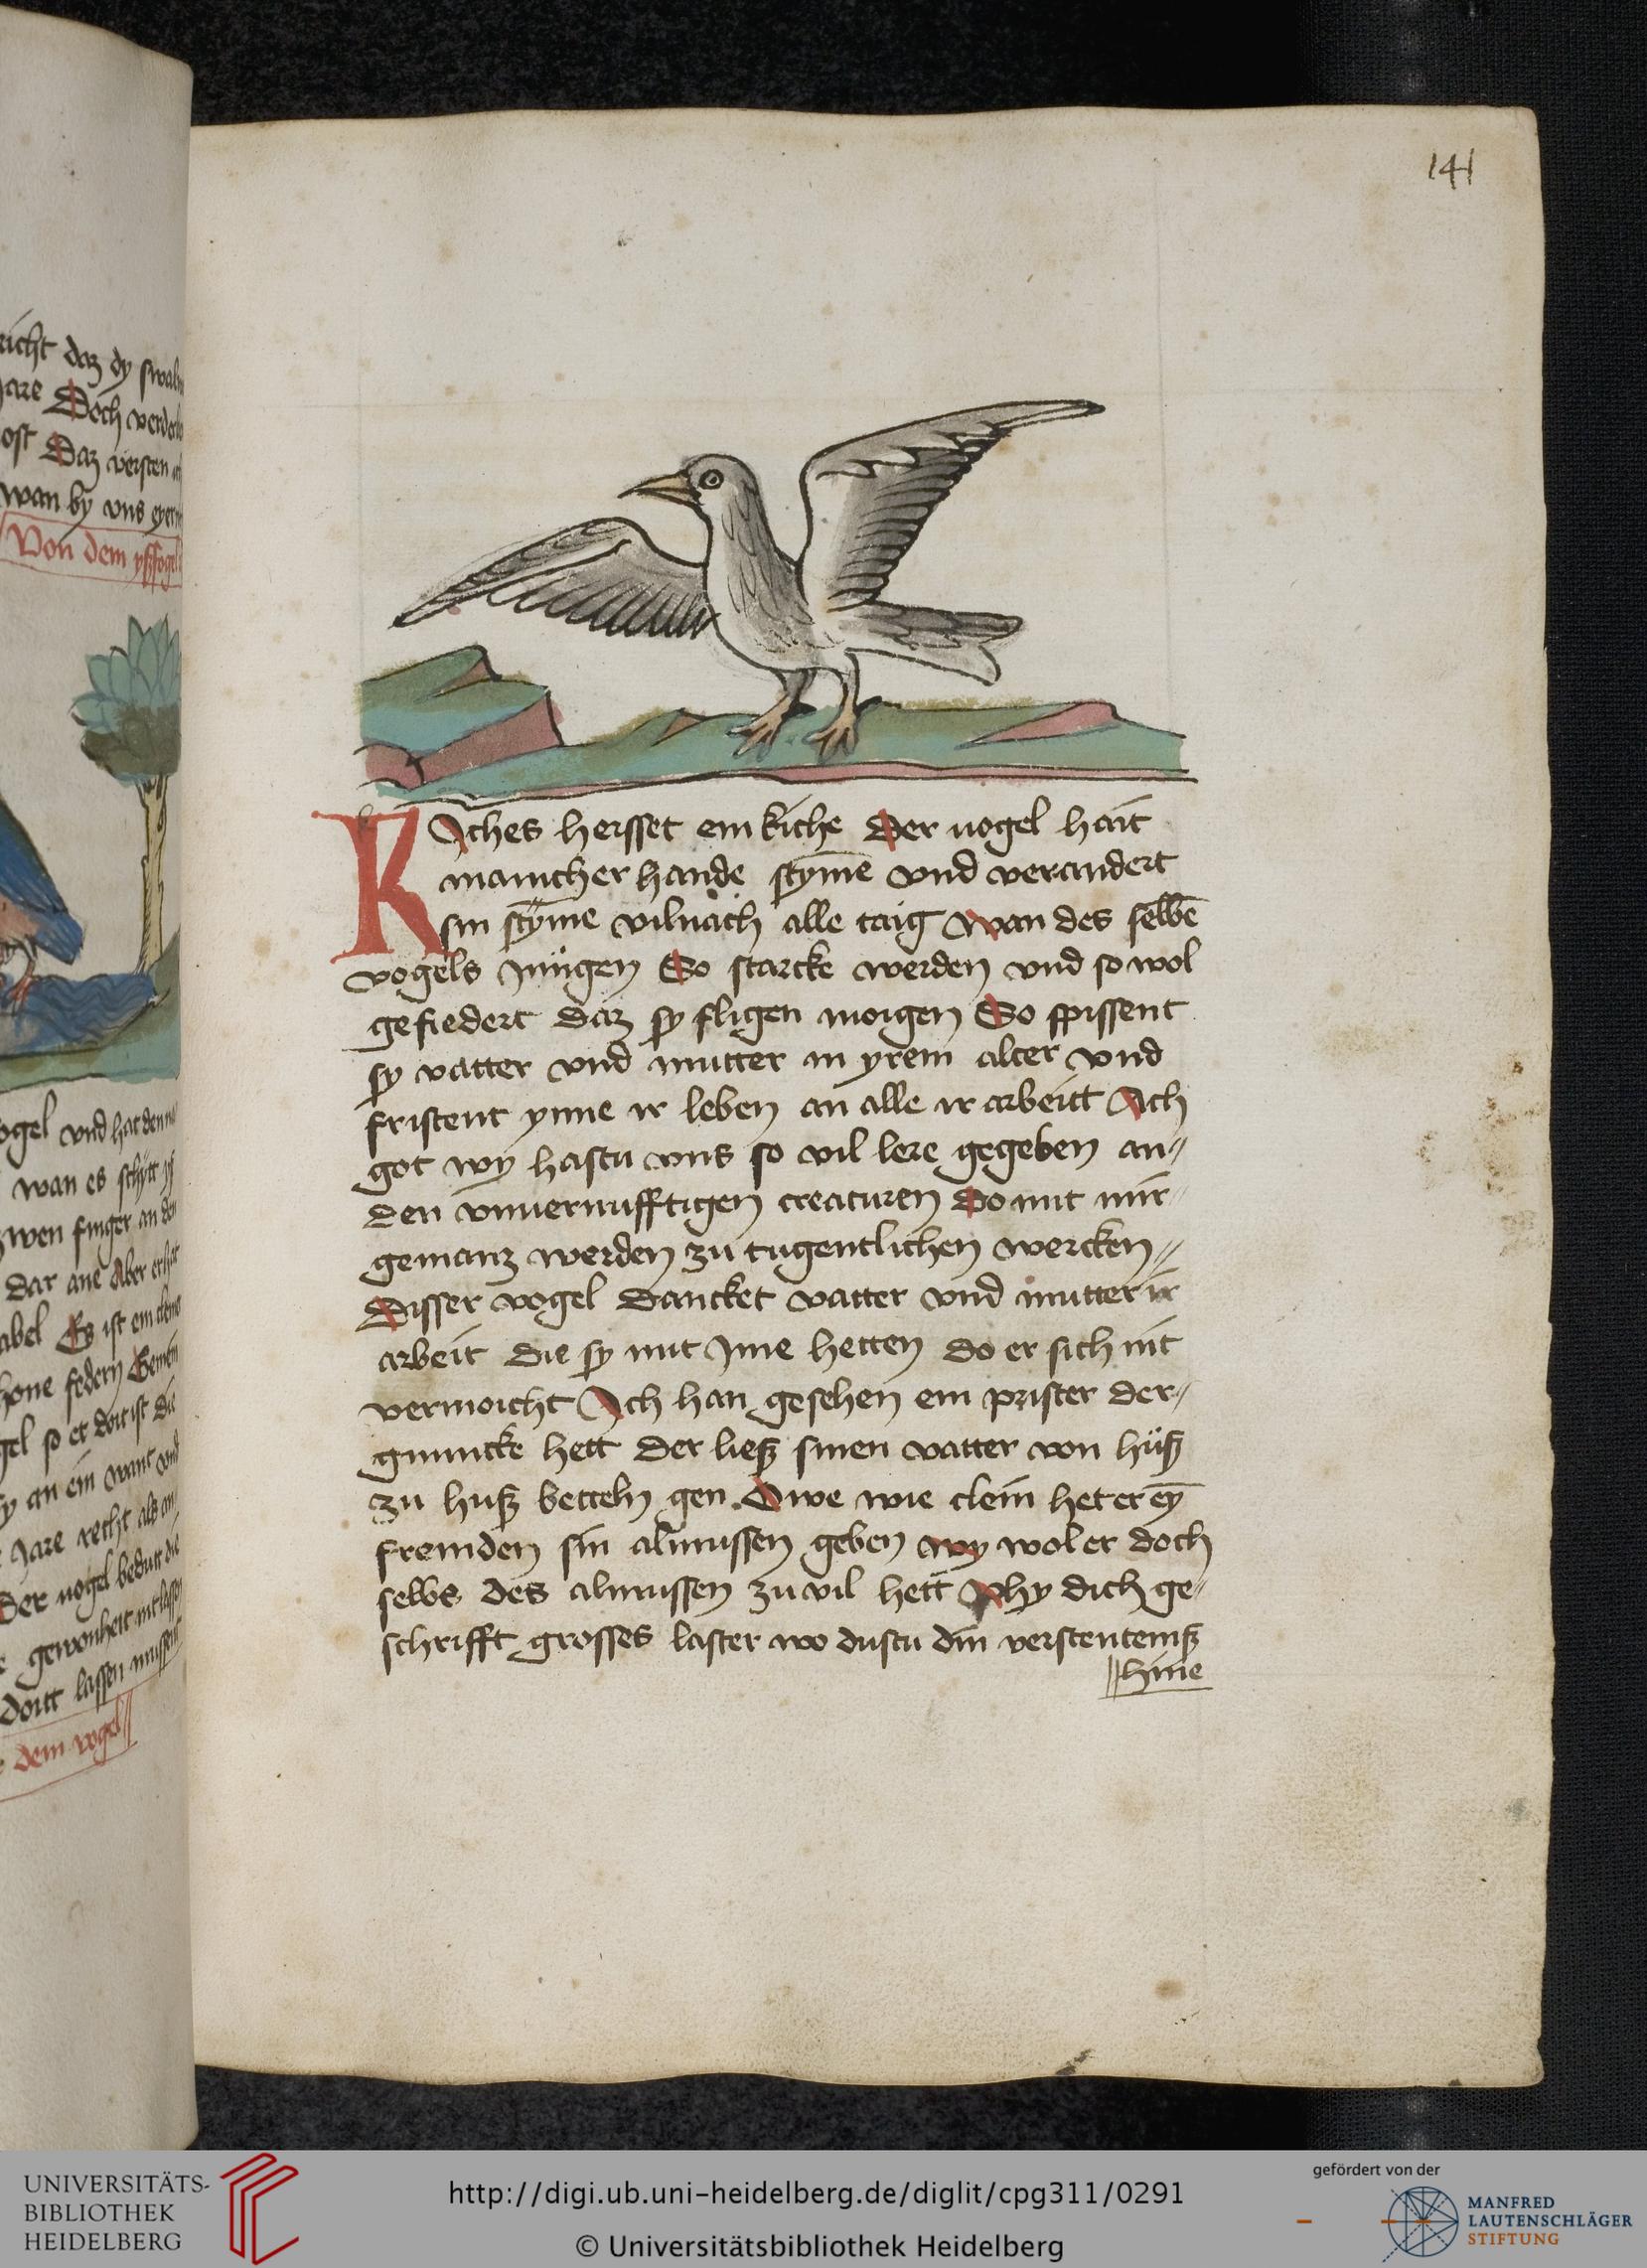 141
richt daz dy swalm
jare Doch verderb
ost Daz versten
wan by vns eyer
Von dem yßfogel
ogel vnd hat den
wan es schytt
zwen finger an den
dar ane Aber er hat
abel Es ist ein clens
hone federn Gemein
gel so er doit ist die
sy an ein want vnd
Jare recht als an
Der vogel bedutt die
gewonheit nit lassen
dortt lassen mussent
dem vogel
KAches heisset ein kiche Der uogel hait
manicher hande stym̄e vnd verandert
sin stym̄e vilnach alle taig Wan des selbē
vogels Jungen So starcke werden vnd so wol
gefiedert daz sy fligen moigen So spissent
sy vatter vnd mutter in yrem alter vnd
fristent ynne ir leben an alle ir arbeitt Ach
got wy hastu vns so vil lere gegeben an〃
den vnuernufftigen creaturen Do mit mir
gemanz werden zu tugentlichen wercken〃
Disser vogel dancket vatter vnd mutter ir
arbeit die sy mit Jme hetten do er sich nit
vermoicht Ich han gesehen ein prister der〃
gnuncke hett der ließ sinen vatter von huß
zu huß betteln gen Owe wie clein het er ey̅
fremden sin almussen geben wy wol er doch
selbs des almussen zu vil hett Phy dich ge〃
schrifft grosses laster wo dustu din verstentemß
hine
UNIVERSITÄTS-
BIBLIOTHEK
HEIDELBERG
http://digi.ub.uni-heidelberg.de/diglit/cpg311/0291
© Universitätsbibliothek Heidelberg
gefördert von der
MANFRED
LAUTENSCHLÄGER
STIFTUNG